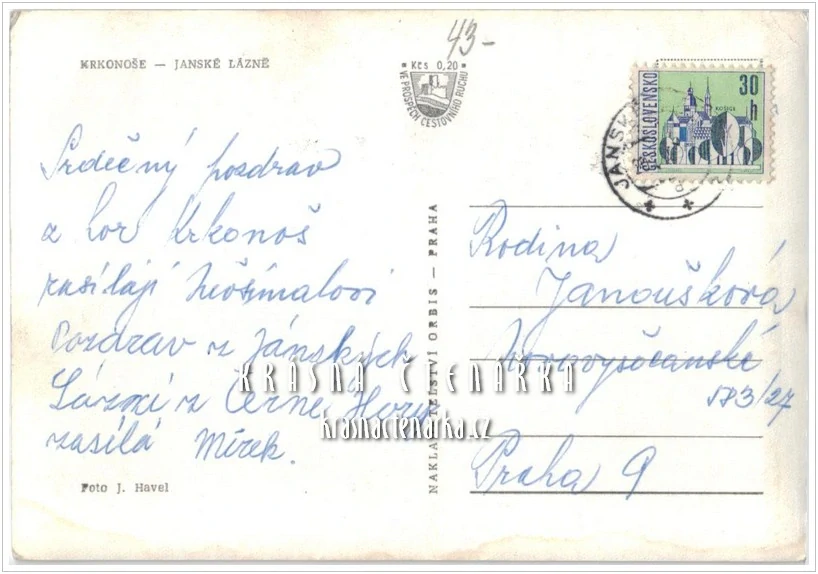 43-
KRKONOŠE — JANSKÉ LÁZNĚ
Kčs 0,20
VE PROSPĚCH CESTOVNÍHO RUCHU
ČESKOSLOVENSKO
30 h
KOŠICE
JANSKÉ
Srdečný pozdrav
z hor Krkonoš
zasílájí
Pozdrav z Jánských
Lázní z Černé Hory
zasílá Mirek.
Foto J. Havel
NAKLADATELSTVÍ ORBIS — PRAHA
Rodina
Janoušková
Novovysočanská
583/27
Praha 9
KRÁSNÁ ČTENÁŘKA
krasnactenarka.cz